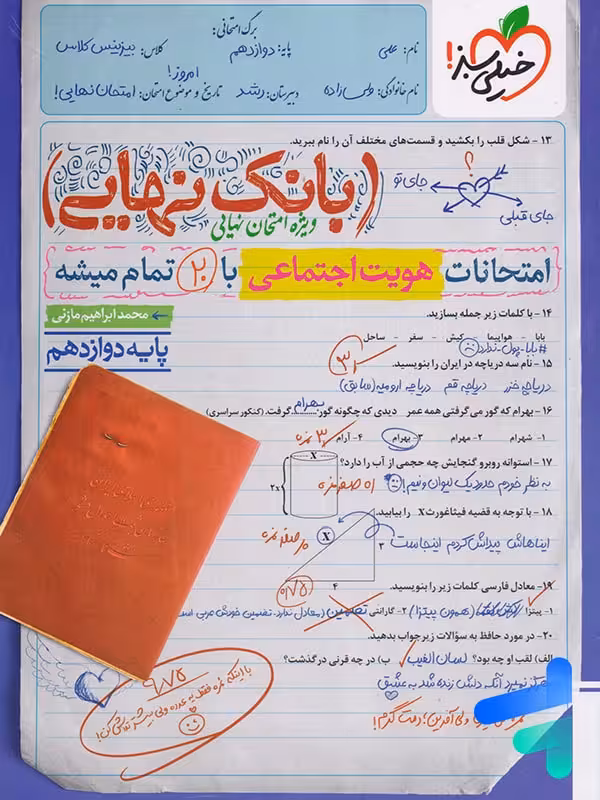 برگ امتحانی:
نام: علی
پایه: دوازدهم
کلاس: بیزینس کلاس
نام خانوادگی: ولی زاده
دبیرستان: رشد
تاریخ و موضوع امتحان: امروز! امتحان نهایی!
خیلی سبز!
۱۳ - شکل قلب را بکشید و قسمت‌های مختلف آن را نام ببرید.
؟
جای تو
جای قبلی
(بانک نهایی)
ویژه امتحان نهایی
امتحانات هویت اجتماعی با ۲۰ تمام میشه
محمد ابراهیم مازنی
پایه دوازدهم
۱۴ - با کلمات زیر جمله بسازید.
بابا - هواپیما - کیش - سفر - ساحل
#بابا_پول_ندارد
۱۵ - نام سه دریاچه در ایران را بنویسید.
دریاچه خزر دریاچه قم دریاچه ارومیه (سابق)
۱۶ - بهرام که گور می‌گرفتی همه عمر دیدی که چگونه گور بهرام گرفت. (کنکور سراسری)
۱- شهرام ۲- مهرام ۳- بهرام ۴- آرام
۱۷ - استوانه روبرو گنجایش چه حجمی از آب را دارد؟
X
2X
به نظر خودم حدود یک لیوان و نیم!
۱۸ - با توجه به قضیه فیثاغورث X را بیابید.
ایناهاش پیداش کردم اینجاست
X
۳
۴
۱۹- معادل فارسی کلمات زیر را بنویسید.
۱- پیتزا (همون پیتزا) ۲- گارانتی تضمین (معادل ندارد. تضمین خودش عربی است
۲۰- در مورد حافظ به سؤالات زیر جواب بدهید.
الف) لقب او چه بود؟ لسان الغیب ب) در چه قرنی در گذشت؟
هرگز نمیرد آنکه دلش زنده شد به عشق
۹/۷۵